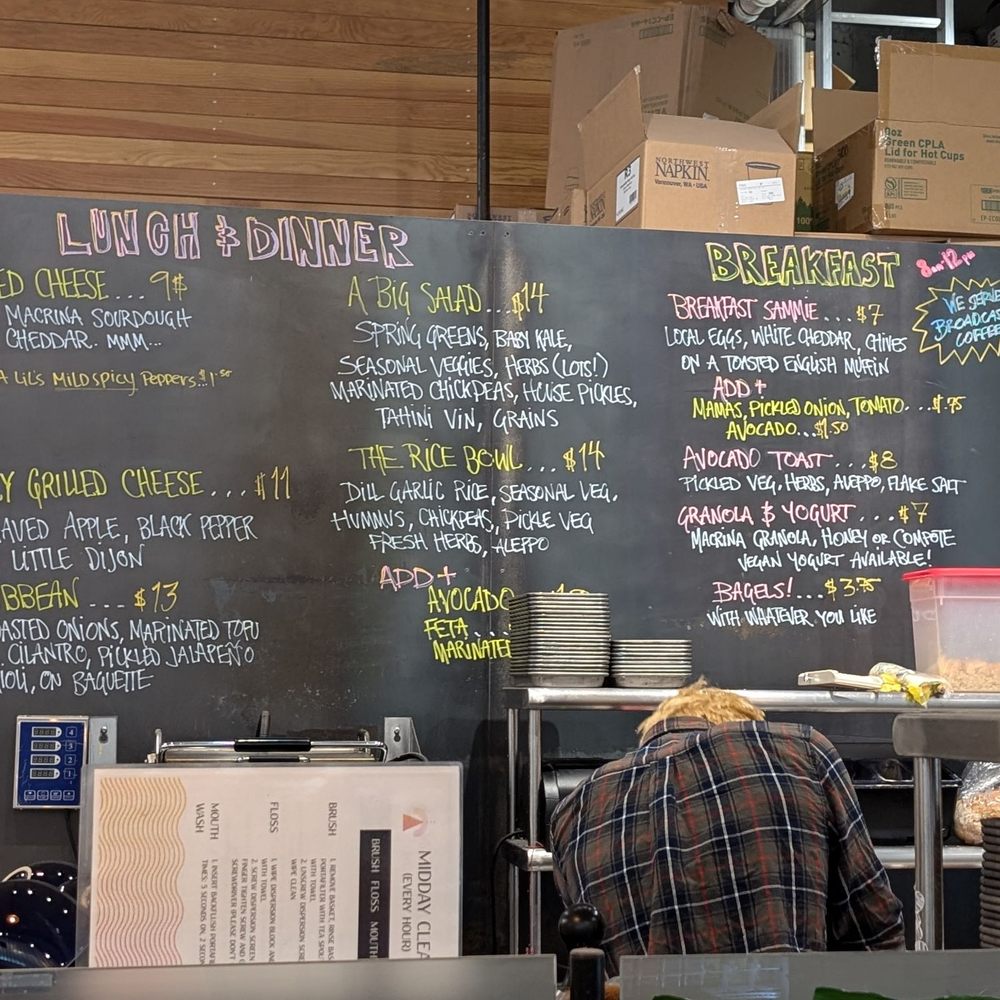 LUNCH & DINNER
ED CHEESE... 9$
MACRINA SOURDOUGH
CHEDDAR. MMM...
A LIL'S MILD SPICY PEPPERS..$1.50
Y GRILLED CHEESE... $11
AVED APPLE, BLACK PEPPER
LITTLE DIJON
BBEAN ... $13
OASTED ONIONS, MARINATED TOFU
CILANTRO, PICKLED JALAPEÑO
IOLI, ON BAGUETTE
A BIG SALAD...$14
SPRING GREENS, BABY KALE,
SEASONAL VEGGIES, HERBS (LOTS!)
MARINATED CHICKPEAS, HOUSE PICKLES,
TAHINI VIN, GRAINS
THE RICE BOWL... $14
DILL GARLIC RICE, SEASONAL VEG,
HUMMUS, CHICKPEAS, PICKLE VEG
FRESH HERBS, ALEPPO
ADD+
AVOCADO
FETA ..
MARINATED
BREAKFAST
8am-12pm
WE SERVE
BROADCAST
COFFEE
BREAKFAST SAMMIE...$7
LOCAL EGGS, WHITE CHEDDAR, CHIVES
ON A TOASTED ENGLISH MUFFIN
ADD+
MAMAS, PICKLED ONION, TOMATO...$.75
AVOCADO...$1.50
AVOCADO TOAST...$8
PICKLED VEG, HERBS, ALEPPO, FLAKE SALT
GRANOLA & YOGURT...$7
MACRINA GRANOLA, HONEY OR COMPOTE
VEGAN YOGURT AVAILABLE!
BAGELS!...$3.75
WITH WHATEVER YOU LIKE
NORTHWEST
NAPKIN
Vancouver, WA • USA
8oz
Green CPLA
Lid for Hot Cups
4
3
2
1
MIDDAY CLEA
(EVERY HOUR)
BRUSH FLOSS MOUTH
BRUSH
1. REMOVE BASKET, RINSE BAS
PORTAFILTER WITH TEA SPOU
WITH TOWEL
2. UNSCREW DISPERSION SCRE
WIPE CLEAN
FLOSS
1. WIPE DISPERSION BLOCK AND
WITH TOWEL
2. SCREW DISPERSION SCREEN
FINGER TIGHTEN SCREW AND
SCREWDRIVER (PLEASE DON'T
MOUTH
WASH
1. INSERT BACKFLUSH PORTAFI
TIMES: 5 SECONDS ON, 2 SECON